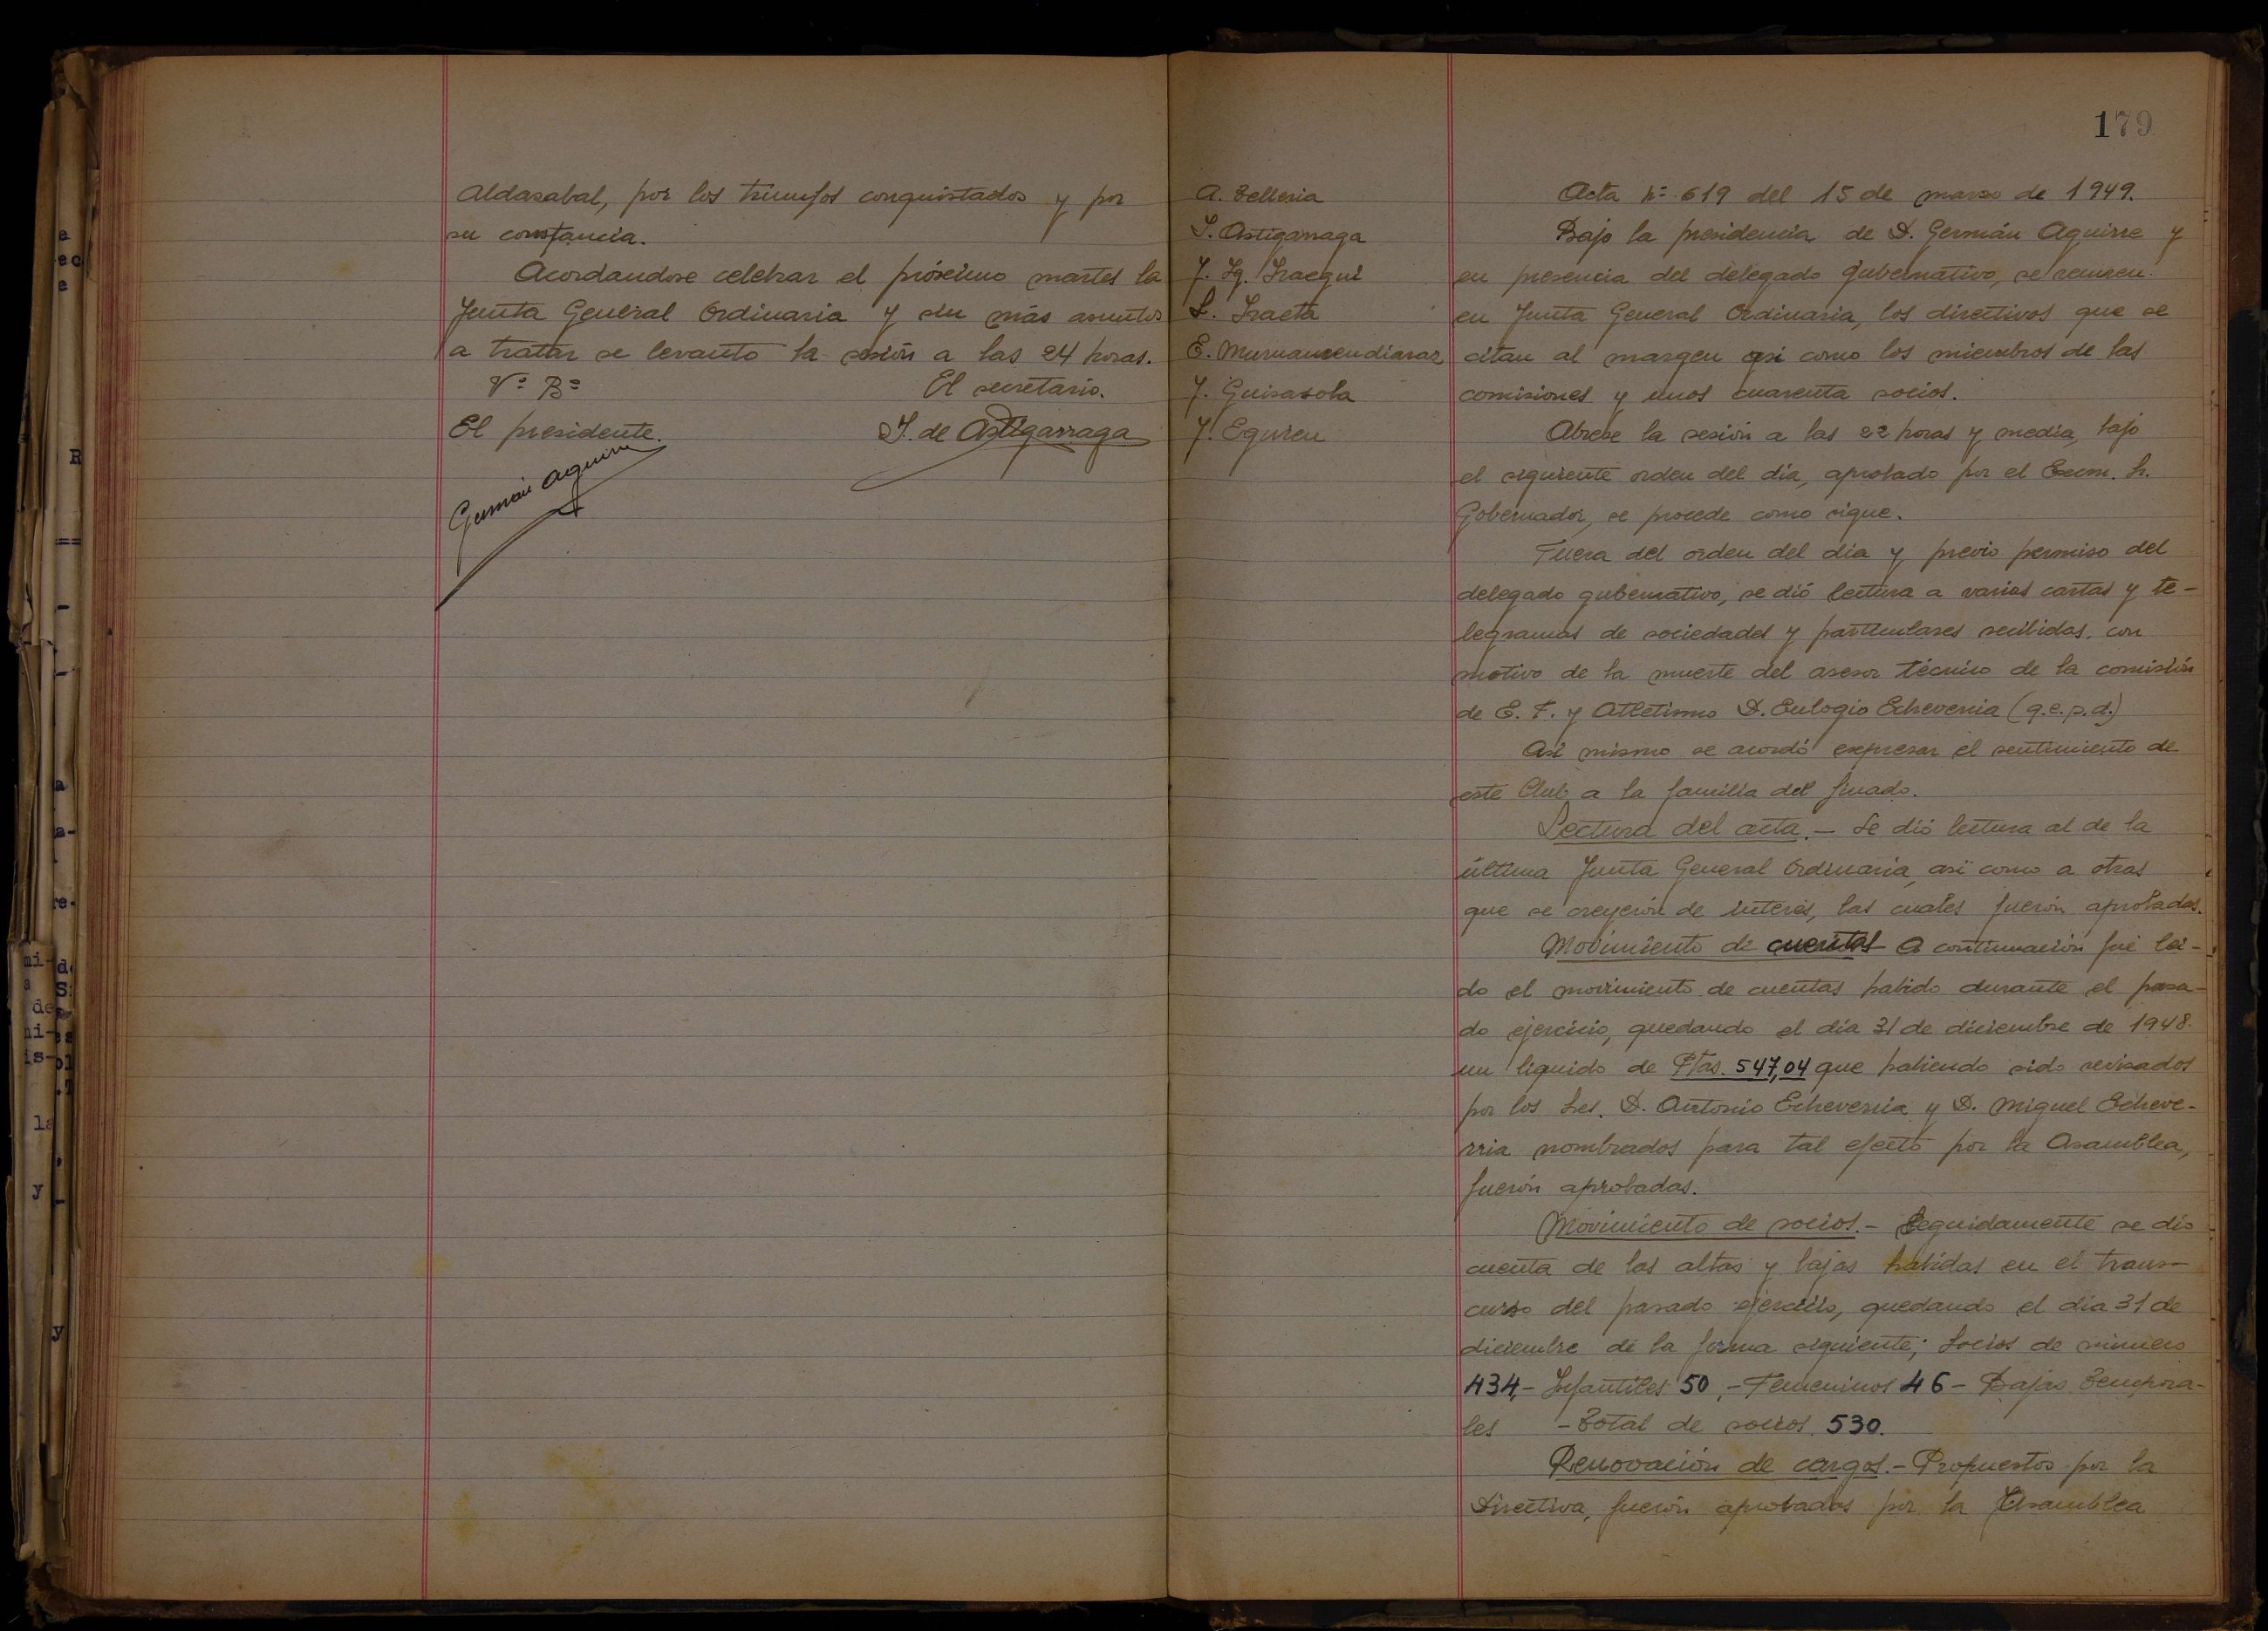 Aldasabal, por los triunfos conquistados y por
su constancia.
Acordandose celebrar el próximo martes la
Junta General Ordinaria y sin más asuntos
a tratar se levanto la sesión a las 24 horas.
Vº Bº El secretario.
El presidente. I. de Astigarraga
Germán Aguirre
179
A. Telleria
I. Astigarraga
J. Ig. Iraegui
L. Iraeta
E. Muruamendiaraz
J. Guisasola
J. Eguren
Acta nº 619 del 15 de marzo de 1949.
Bajo la presidencia de D. Germán Aguirre y
en presencia del delegado gubernativo, se reunen
en Junta General Ordinaria, los directivos que se
citan al margen asi como los miembros de las
comisiones y unos cuarenta socios.
Abrese la sesión a las 22 horas y media, bajo
el siguiente orden del día, aprobado por el Excm. Sr.
Gobernador, se procede como sigue.
Fuera del orden del dia y previo permiso del
delegado gubernativo, se dió lectura a varias cartas y te-
legramas de sociedades y particulares recibidas, con
motivo de la muerte del asesor técnico de la comisión
de E. F. y Atletismo D. Eulogio Echeverria (q.e.p.d.)
Asi mismo se acordó expresar el sentimiento de
este Club a la familia del finado.
Lectura del acta.- Se dió lectura al de la
última Junta General Ordinaria, asi como a otras
que se creyerón de interés, las cuales fuerón aprobadas.
Movimiento de cuentas- A continuación fué lei-
do el movimiento de cuentas habido durante el pasa-
do ejercicio, quedando el día 31 de diciembre de 1948.
un liquido de Ptas. 547,04 que habiendo sido revisados
por los Sres. D. Antonio Echeverria y D. Miguel Echeve-
rria nombrados para tal efecto por la Asamblea,
fuerón aprobadas.
Movimiento de socios.- Seguidamente se dió
cuenta de las altas y bajas habidas en el trans-
curso del pasado ejercicio, quedando el día 31 de
diciembre de la forma siguiente; Socios de número
434,- Infantiles 50,- Femeninos 46- Bajas Tempora-
les - Total de socios. 530.
Renovación de cargos.- Propuestos por la
Directiva, fuerón aprobados por la Asamblea